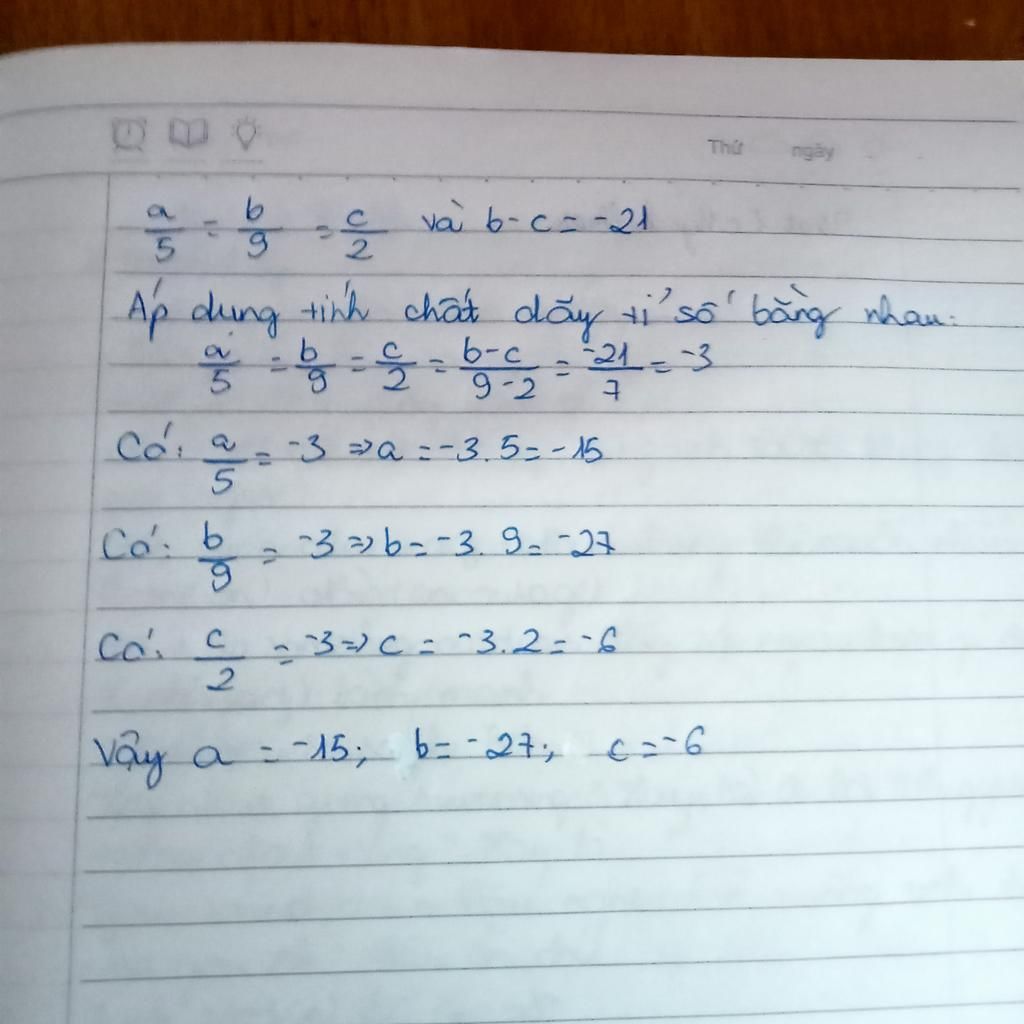 Thứ ngày
a/5 = b/9 = c/2 và b-c = -21
Áp dung tính chất dãy tỉ số bằng nhau:
a/5 = b/9 = c/2 = b-c/9-2 = -21/7 = -3
Có: a/5 = -3 => a = -3.5 = -15
Có: b/9 = -3 => b = -3. 9 = -27
Có: c/2 = -3 => c = -3.2 = -6
Vậy a = -15; b = -27; c = -6